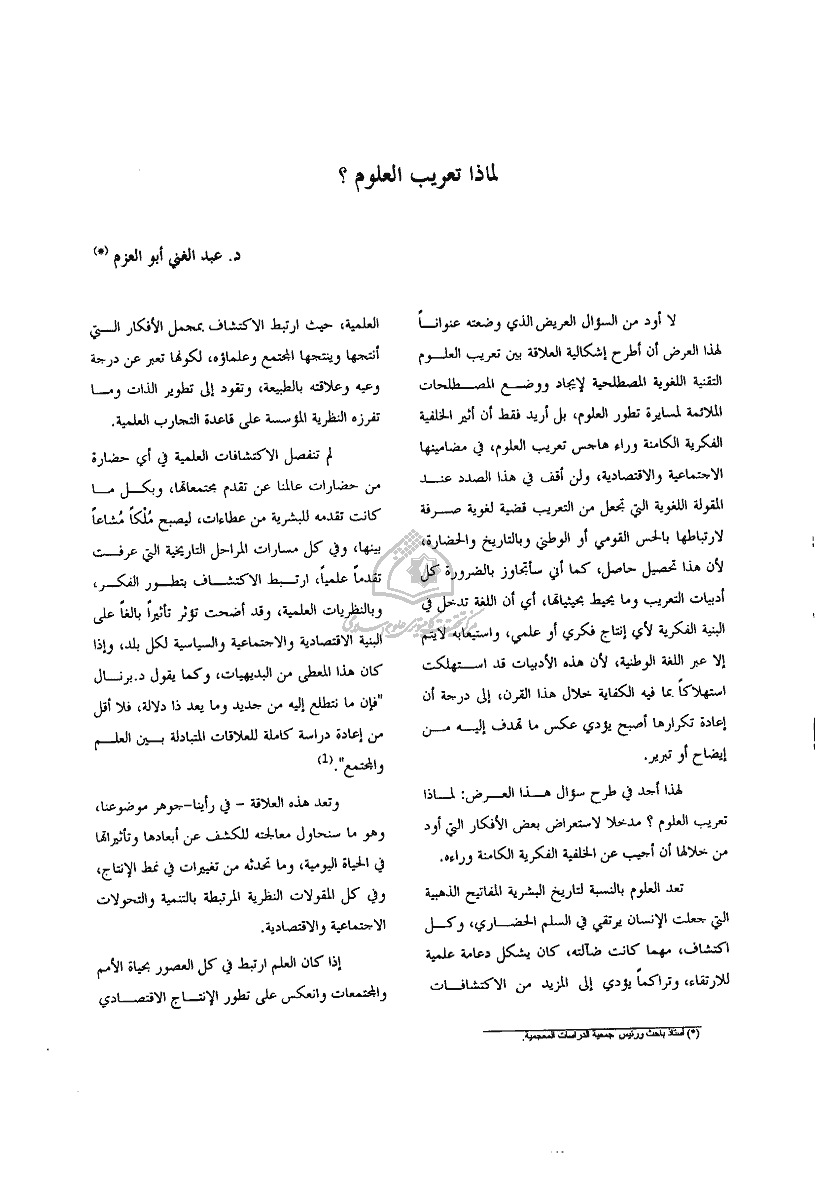 لماذا تعريب العلوم ؟
د. عبد الغني أبو العزم (*)
لا أود من السؤال العريض الذي وضعته عنواناً
لهذا العرض أن أطرح إشكالية العلاقة بين تعريب العلوم
التقنية اللغوية المصطلحية لإيجاد ووضع المصطلحات
الملائمة لمسايرة تطور العلوم، بل أريد فقط أن أثير الخلفية
الفكرية الكامنة وراء هاجس تعريب العلوم، في مضامينها
الاجتماعية والاقتصادية، ولن أقف في هذا الصدد عند
المقولة اللغوية التي تجعل من التعريب قضية لغوية صرفة
لارتباطها بالحس القومي أو الوطني وبالتاريخ والحضارة،
لأن هذا تحصيل حاصل، كما أني سأتجاوز بالضرورة كل
أدبيات التعريب وما يحيط بحيثياتها، أي أن اللغة تدخل في
البنية الفكرية لأي إنتاج فكري أو علمي، واستيعابه لايتم
إلا عبر اللغة الوطنية، لأن هذه الأدبيات قد استهلكت
استهلاكاً بما فيه الكفاية خلال هذا القرن، إلى درجة أن
إعادة تكرارها أصبح يؤدي عكس ما تهدف إليه من
إيضاح أو تبرير.
لهذا أجد في طرح سؤال هذا العرض: لماذا
تعريب العلوم ؟ مدخلا لاستعراض بعض الأفكار التي أود
من خلالها أن أجيب عن الخلفية الفكرية الكامنة وراءه.
تعد العلوم بالنسبة لتاريخ البشرية المفاتيح الذهبية
التي جعلت الإنسان يرتقي في السلم الحضاري، وكل
اكتشاف، مهما كانت ضآلته، كان يشكل دعامة علمية
للارتقاء، وتراكماً يؤدي إلى المزيد من الاكتشافات
العلمية، حيث ارتبط الاكتشاف بمجمل الأفكار التي
أنتجها وينتجها المجتمع وعلماؤه، لكونها تعبر عن درجة
وعيه وعلاقته بالطبيعة، وتقود إلى تطوير الذات وما
تفرزه النظرية المؤسسة على قاعدة التجارب العلمية.
لم تنفصل الاكتشافات العلمية في أي حضارة
من حضارات عالمنا عن تقدم مجتمعاتها، وبكل ما
كانت تقدمه للبشرية من عطاءات، ليصبح مُلْكاً مُشاعاً
بينها، وفي كل مسارات المراحل التاريخية التي عرفت
تقدماً علمياً، ارتبط الاكتشاف بتطور الفكر،
وبالنظريات العلمية، وقد أضحت تؤثر تأثيراً بالغاً على
البنية الاقتصادية والاجتماعية والسياسية لكل بلد، وإذا
كان هذا المعطى من البديهيات، وكما يقول د.برنال
"فإن ما نتطلع إليه من جديد وما يعد ذا دلالة، فلا أقل
من إعادة دراسة كاملة للعلاقات المتبادلة بين العلم
والمجتمع".(1)
وتعد هذه العلاقة - في رأينا-جوهر موضوعنا،
وهو ما سنحاول معالجته للكشف عن أبعادها وتأثيراتها
في الحياة اليومية، وما تحدثه من تغييرات في نمط الإنتاج،
وفي كل المقولات النظرية المرتبطة بالتنمية والتحولات
الاجتماعية والاقتصادية.
إذا كان العلم ارتبط في كل العصور بحياة الأمم
والمجتمعات وانعكس على تطور الإنتاج الاقتصادي
(*) أستاذ باحث ورئيس جمعية الدراسات المعجمية.